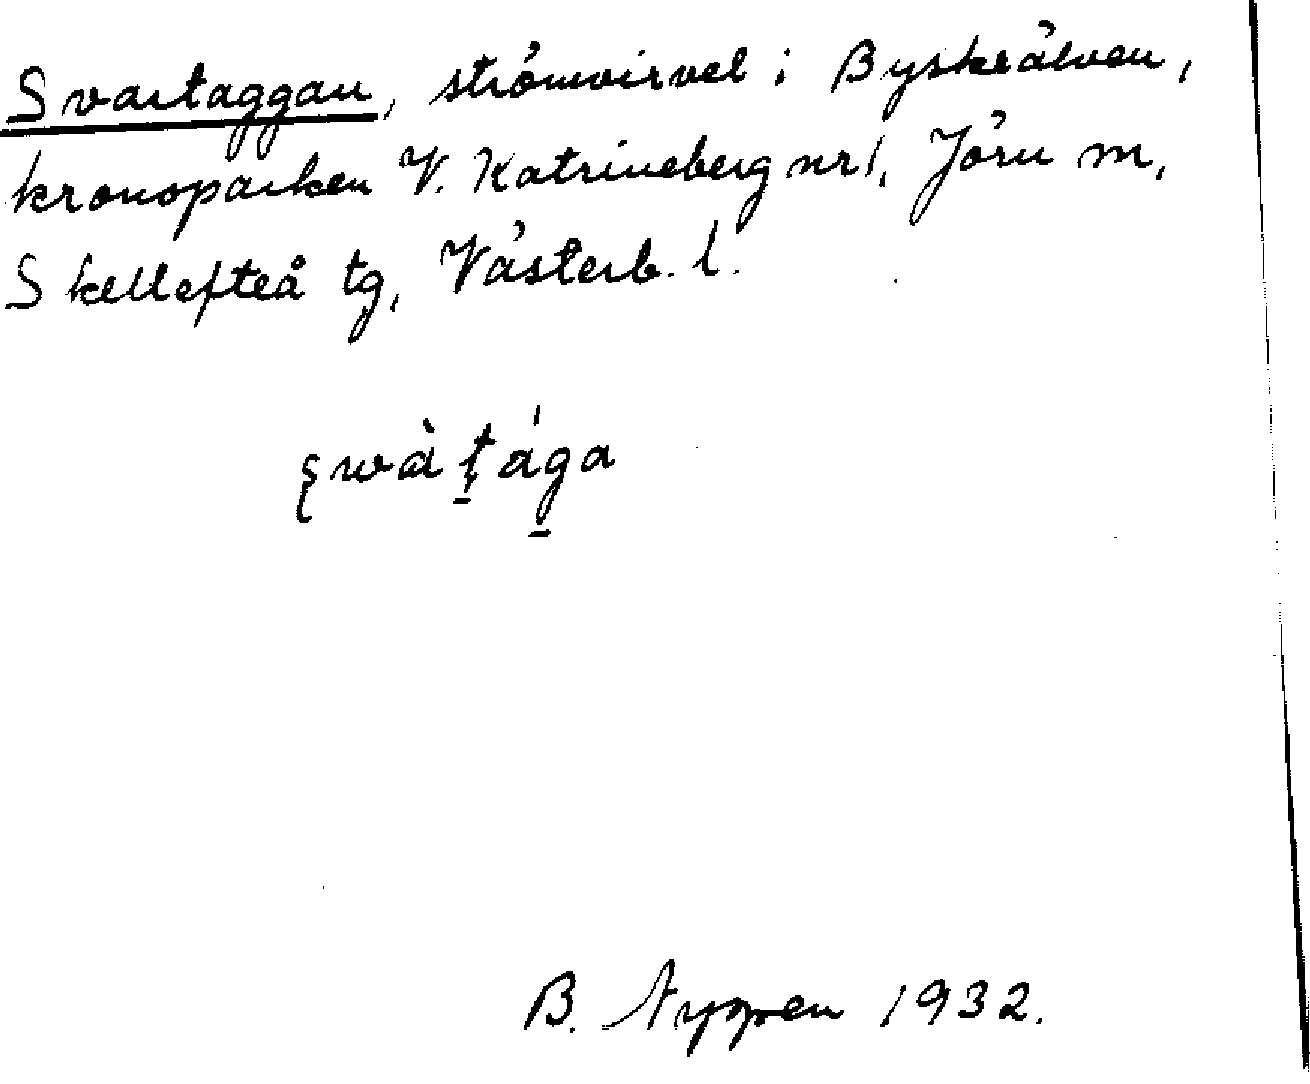 Svartaggan, strömvirvel i Byskeälven,
kronoparken V. Katrineberg nr 1, Jörn m,
Skellefteå tg, Västerb. l.
B. Nyppen 1932.